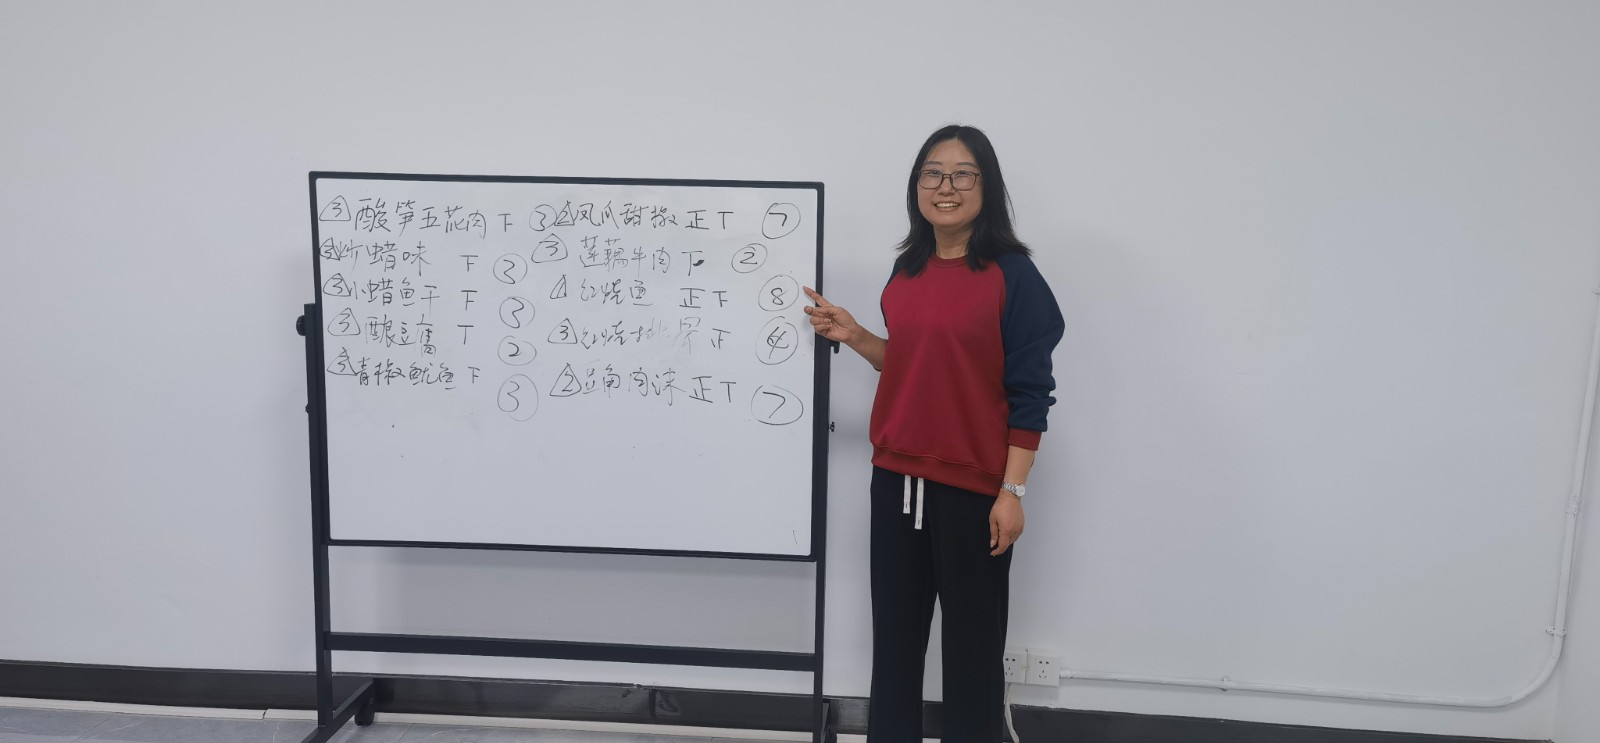 ③酸笋五花肉 下 ③
②炒蜡味 下 ③
③小蜡鱼干 下 ③
③酿豆腐 丅 ②
③青椒鱿鱼 下 ③
②凤爪甜椒 正丅 ⑦
③莲藕牛肉 下 ②
1 红烧鱼 正下 ⑧
③红烧排骨 正 ④
②豆角肉沫 正丅 ⑦